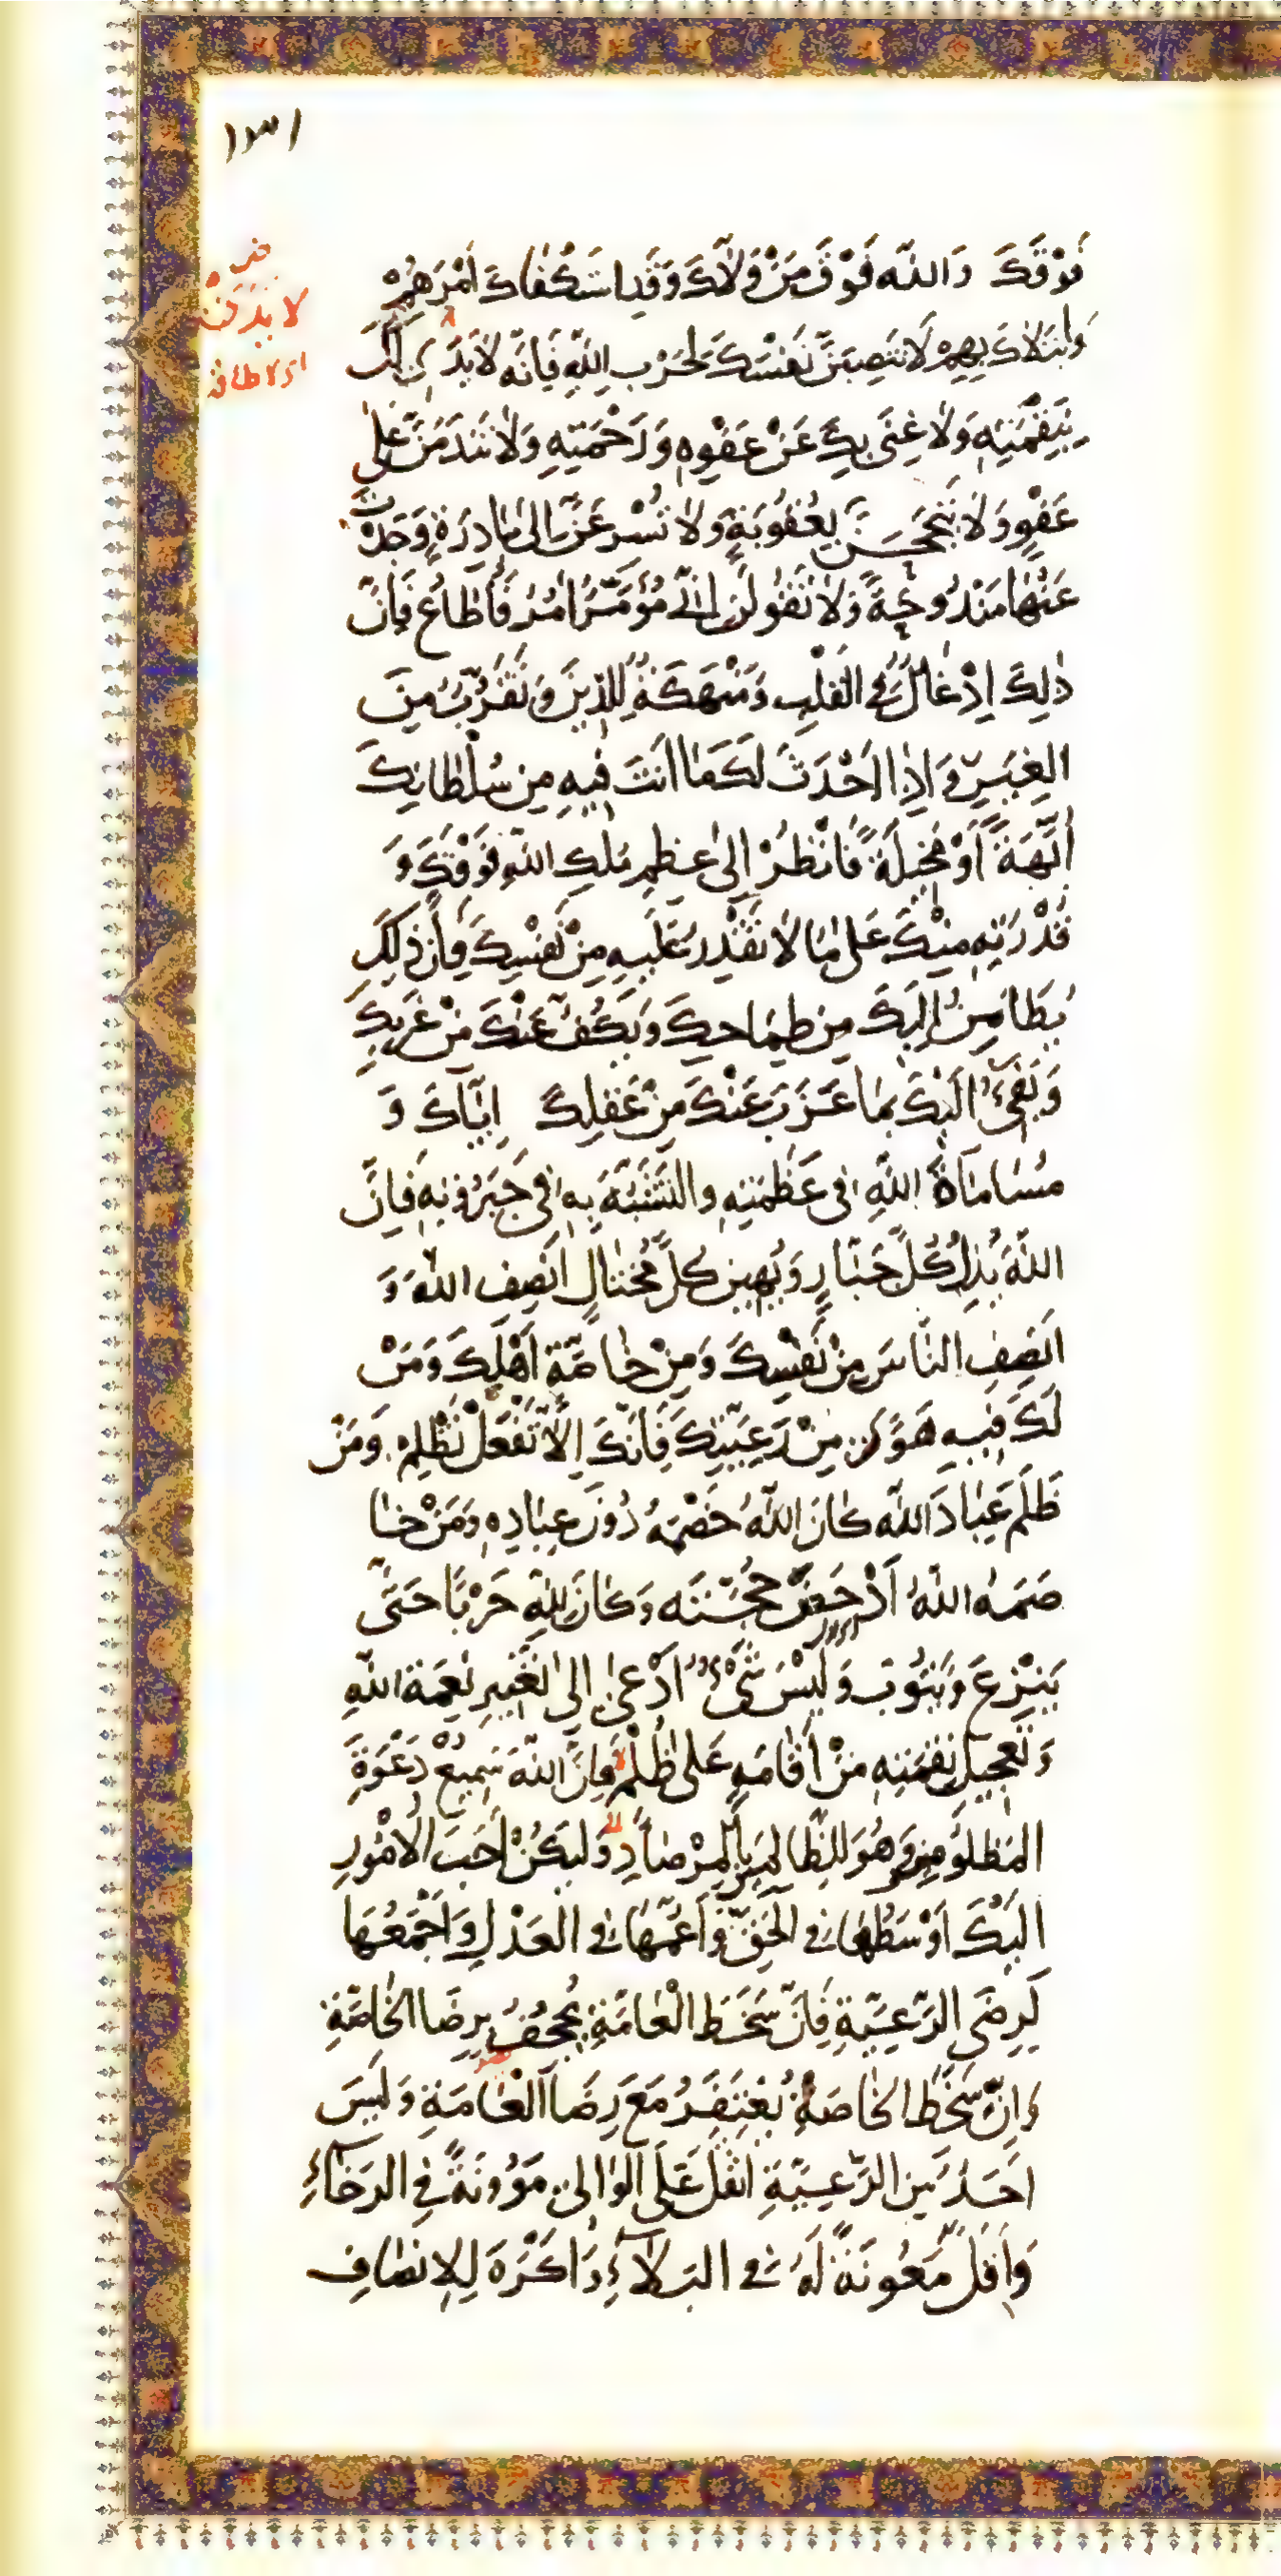 ١٣١
فَوْقَكَ وَاللّه فَوْقَ مَنْ وَلَّاكَ وَقَدِ استَكْفاكَ اَمْرَهُمْ
وَابْتَلاكَ بِهِمْ لاتَنصِبَنَّ نَفْسَكَ لِحَرْبِ اللّهِ فَاِنَّه لابَدَىْ لَكَ
بِنَقِمَتِهِ وَلا غِنى بِكَ عَنْ عَفْوِهِ وَرَحْمَتِهِ وَلا تَنْدَمَنَّ عَلى
عَفْوٍ وَلا تَبْجَحَنَّ بِعُقُوبَةٍ وَلا تُسْرِعَنَّ اِلى بادِرَةٍ وَجَدْتَ
عَنْها مَنْدُوحَةً وَلا تَقُولَنَّ اِنّى مُؤَمَّرٌ امُرُ فَاُطاعُ فَاِنَّ
ذلِكَ اِدْغالٌ فِى القَلْبِ وَمَنْهَكَةٌ لِلدّينِ وَتَقَرُّبٌ مِنَ
الغِيَرِ وَاِذا اَحْدَثَ لَكَ ما اَنتَ فيهِ مِن سُلْطانِكَ
اُبَّهَةً اَوْ مَخيلَةً فَانْظُرْ اِلى عِظَمِ مُلكِ اللّهِ فَوْقَكَ وَ
قُدْرَتِهِ مِنْكَ عَلى ما لا تَقْدِرُ عَلَيهِ مِنْ نَفْسِكَ فَاِنَّ ذلِكَ
يُطامِنُ اِلَيكَ مِن طِماحِكَ وَيَكُفُّ عَنْكَ مِنْ غَربِكَ
وَيَفىءُ اِلَيْكَ بِما عَزَبَ عَنْكَ مِنْ عَقلِكَ اِيّاكَ وَ
مُساماةَ اللّهِ فى عَظَمَتِهِ والتَشَبُّهَ بِهِ فى جَبَرُوتِهِ فَاِنَّ
اللّهَ يُذِلُّ كُلَّ جَبّارٍ وَيُهينُ كلَّ مُختالٍ اَنْصِفِ اللّهَ وَ
اَنصِفِ النّاسَ مِنْ نَفْسِكَ وَمِنْ خاصَّةِ اَهْلِكَ وَمَنْ
لَكَ فيهِ هَوًى مِنْ رَعِيَّتِكَ فَاِنَّكَ اِلّا تَفْعَلْ تَظْلِم وَمَنْ
ظَلَمَ عِبادَ اللّه كانَ اللّهُ خَصْمَهُ دُونَ عِبادِهِ وَمَنْ خا
صَمَهُ اللّهُ اَدْحَضَ حُجَّتَه وَكانَ لِلّهِ حَرْبًا حَتّى
يَنْزِعَ وَيَتُوبَ وَلَيْسَ شَىْءٌ اَدْعى اِلى تَغْييرِ نِعمَةِ اللّهِ
وَتَعجيلِ نِقمَتِهِ مِنْ اِقامَةٍ عَلى ظُلْمٍ فَاِنَّ اللّهَ سَميعٌ دَعْوَةَ
المَظلُومينَ وَهُوَ لِلظّالِمينَ بِالْمِرْصادِ وَليَكُنْ اَحَبَّ الاُمُورِ
اِلَيْكَ اَوْسَطُها فِى الحَقِّ وَاَعَمُّها فِى العَدْلِ وَاَجْمَعُها
لِرِضَى الرَّعِيَّةِ فَاِنَّ سَخَطَ الْعامَّةِ يُجحِفُ بِرِضَا الخاصَّةِ
وَاِنَّ سَخَطَ الخاصَةِ يُغْتَفَرُ مَعَ رِضَا الْعامَةِ وَلَيسَ
اَحَدٌ مِنَ الرَّعِيَّةِ اَثْقَلَ عَلَى الوالى مَؤُونَةً فِى الرَخاءِ
وَاَقَلَّ مَعُونَةً لَهُ فِى البَلاءِ وَاَكْرَهَ لِلاِنصافِ